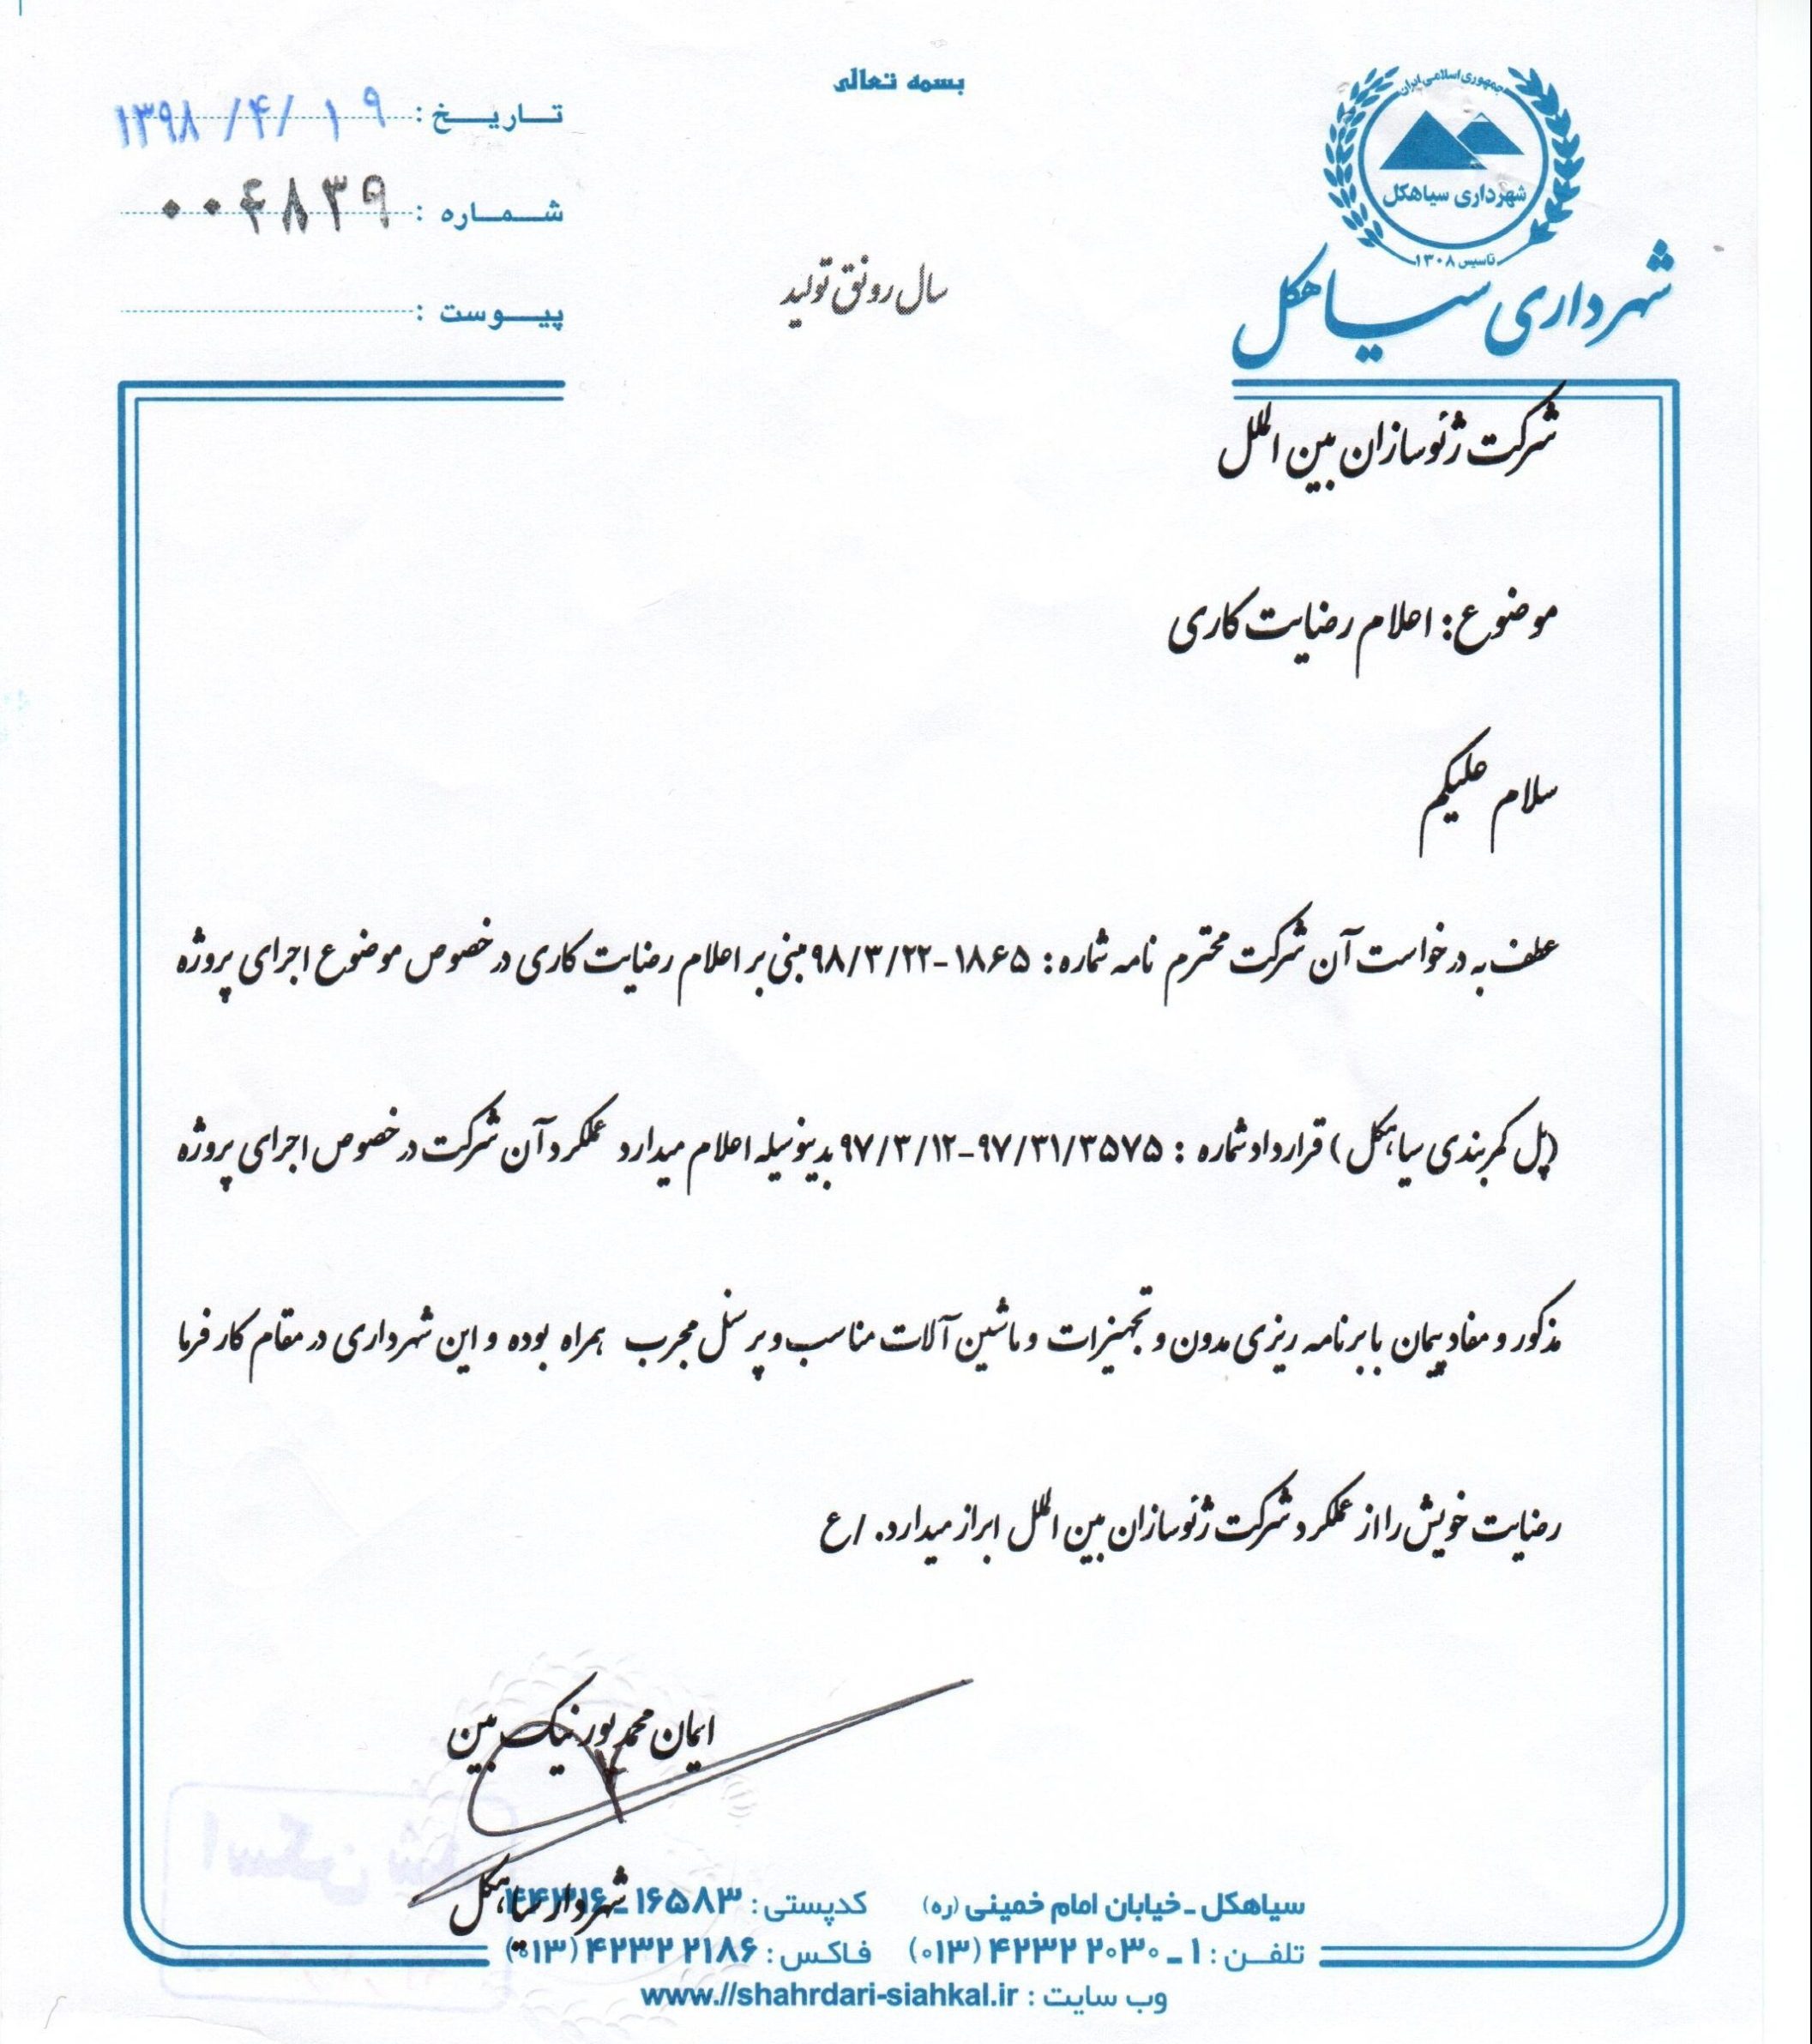 بسمه تعالی
جمهوری اسلامی ایران
شهرداری سیاهکل
تاسیس ۱۳۰۸
شهرداری سیاهکل
تاریخ : ۱۳۹۸/۴/۱۹
شماره : ۰۰۴۸۳۹
پیوست :
سال رونق تولید
شرکت ژئوسازان بین الملل
موضوع : اعلام رضایت کاری
سلام علیکم
عطف به درخواست آن شرکت محترم نامه شماره : ۱۸۶۵-۹۸/۳/۲۲ مبنی بر اعلام رضایت کاری در خصوص موضوع اجرای پروژه
(پل کمربندی سیاهکل) قرارداد شماره : ۹۷/۳۱/۳۵۷۵-۹۷/۳/۱۲ بدینوسیله اعلام میدارد عملکرد آن شرکت در خصوص اجرای پروژه
مذکور و مفاد پیمان با برنامه ریزی مدون و تجهیزات و ماشین آلات مناسب و پرسنل مجرب همراه بوده و این شهرداری در مقام کارفرما
رضایت خویش را از عملکرد شرکت ژئوسازان بین الملل ابراز میدارد. /ع
ایمان محمدپور نیک بین
شهردار سیاهکل
اسکن شد
سیاهکل ـ خیابان امام خمینی (ره) کدپستی : ۱۶۵۸۳ـ
تلفن : ۱ ـ ۲۰۳۰ ۴۲۳۲ (۰۱۳) فاکس : ۲۱۸۶ ۴۲۳۲ (۰۱۳)
وب سایت : www.//shahrdari-siahkal.ir